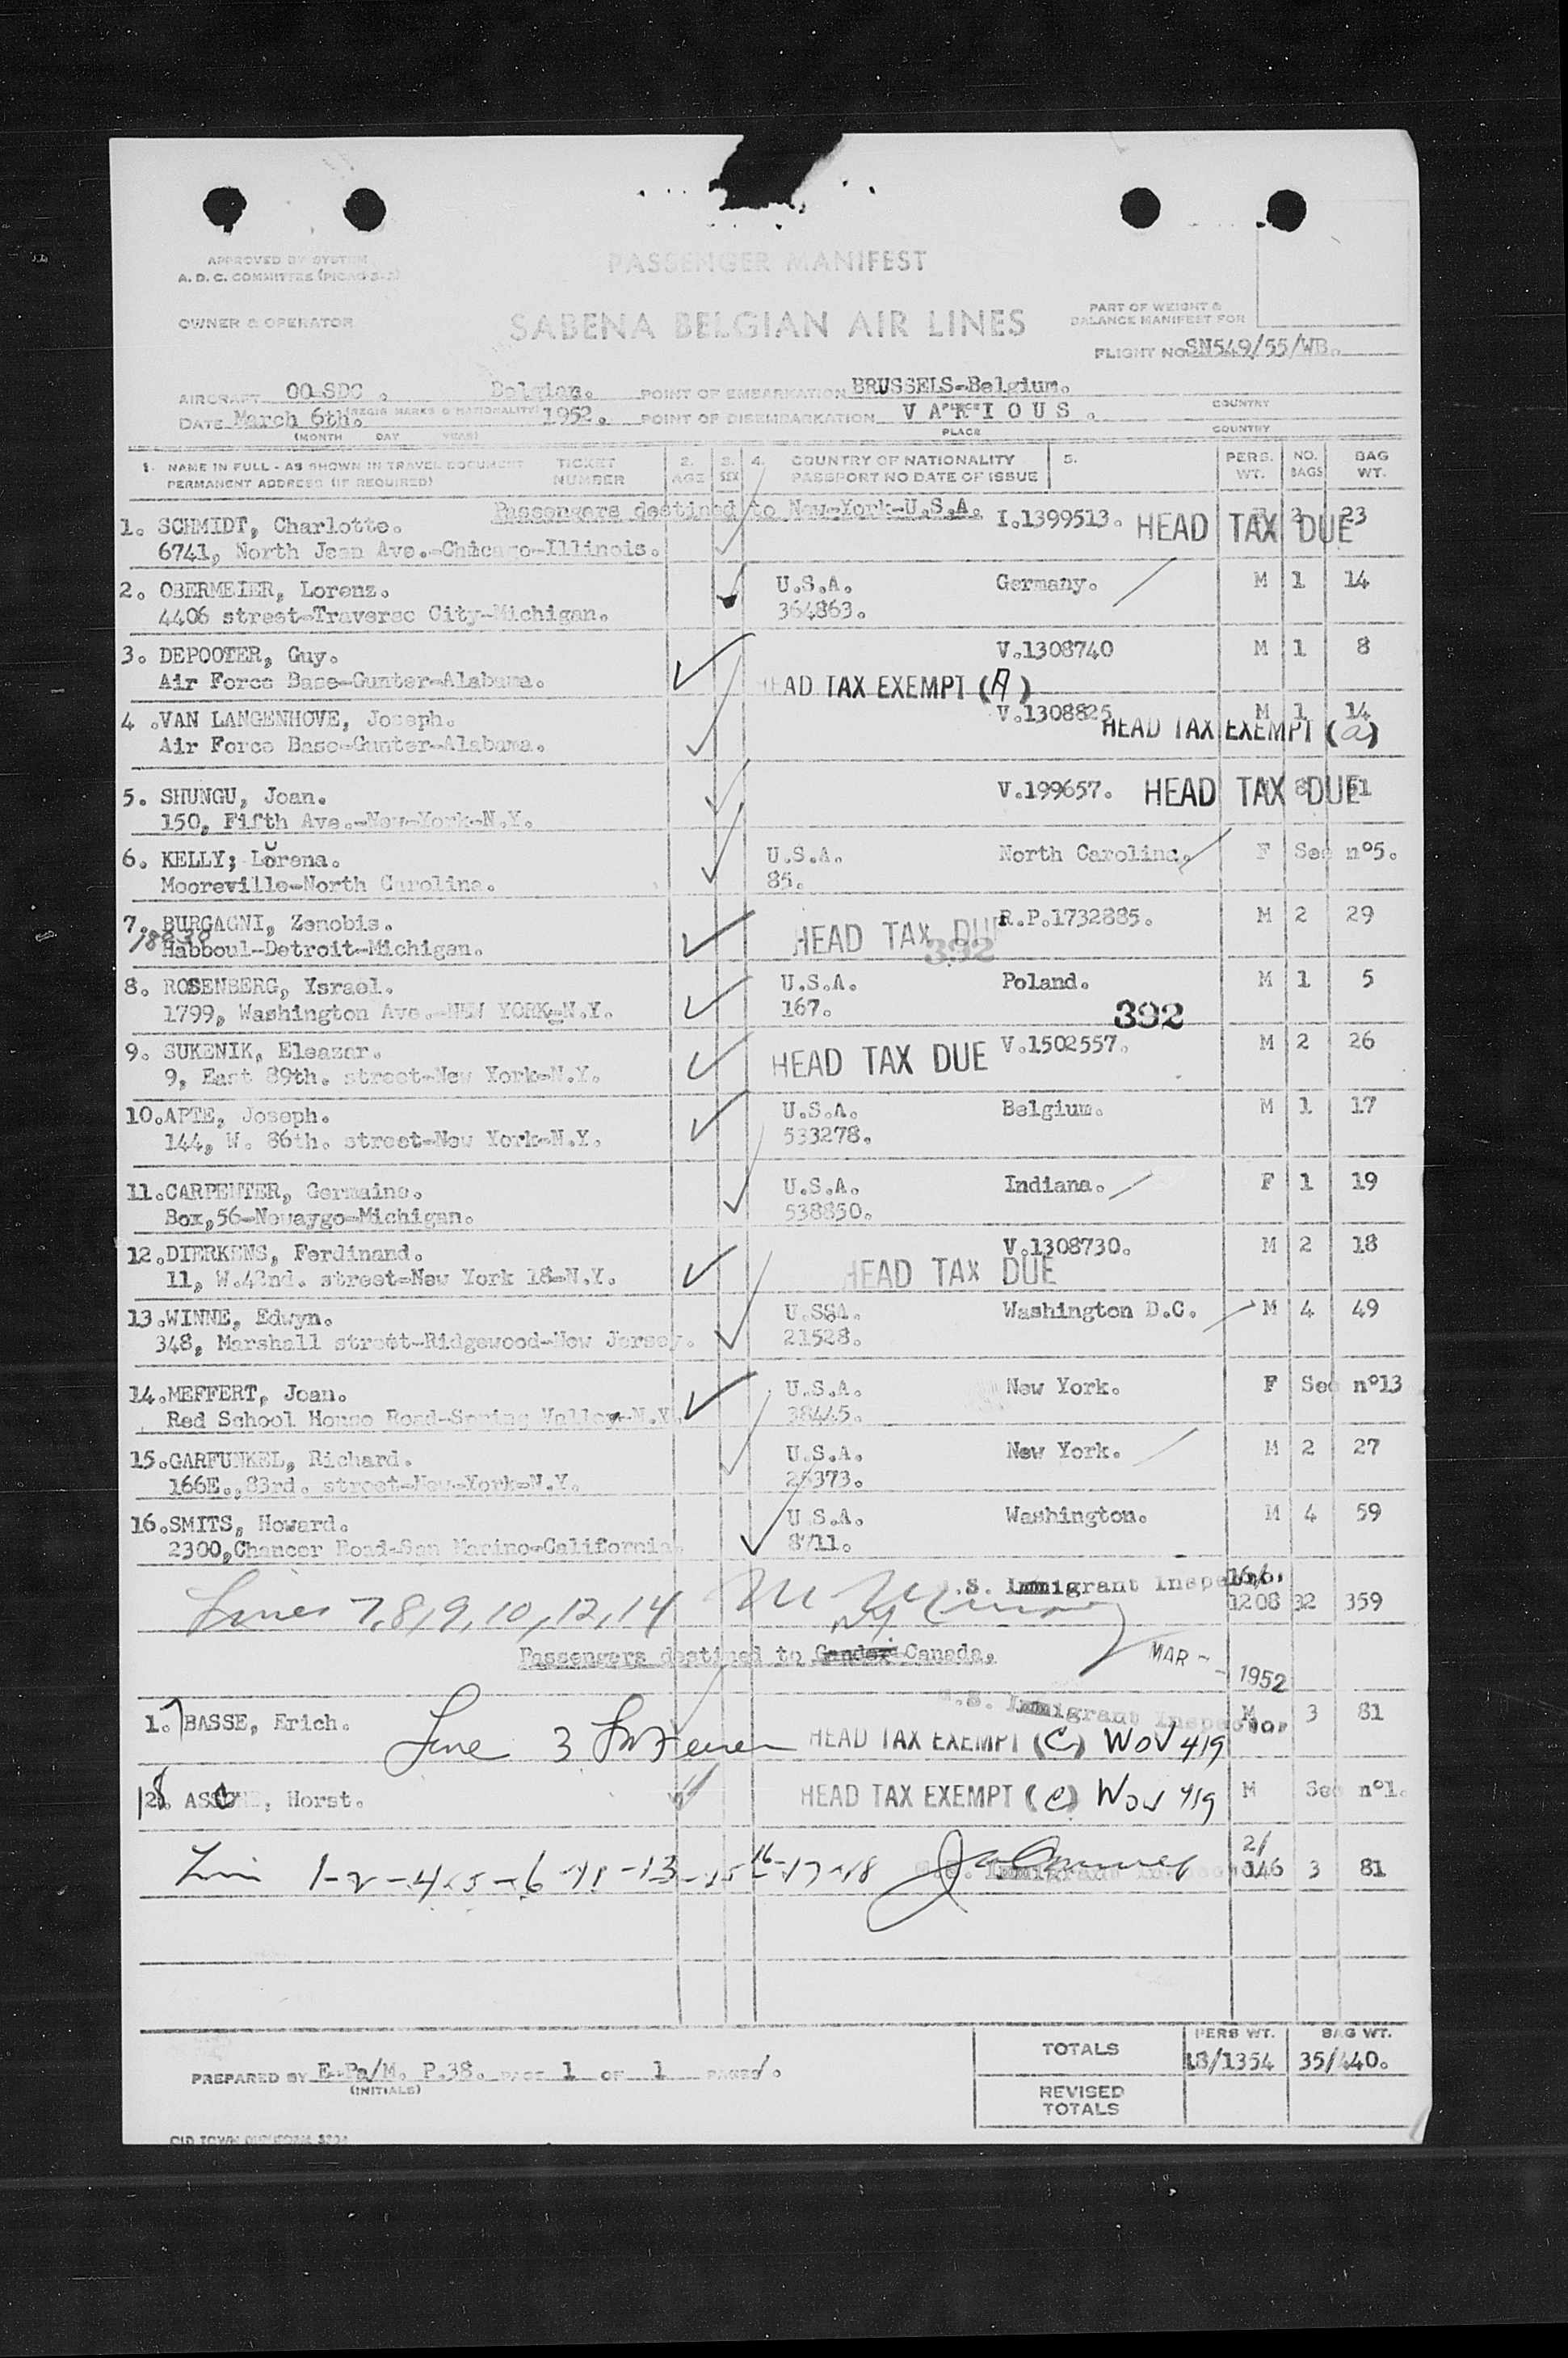 APPROVED BY SYSTEM
A. D. C. COMMITTEE
PASSENGER MANIFEST
OWNER & OPERATOR
SABENA BELGIAN AIR LINES
PART OF WEIGHT &
BALANCE MANIFEST FOR
FLIGHT NO SN549/55/WB.
AIRCRAFT OO-SDC . Belgian. POINT OF EMBARKATION BRUSSELS-Belgium.
(REGIS MARKS & NATIONALITY) COUNTRY
DATE March 6th. 1952. POINT OF DISEMBARKATION V A R I O U S .
(MONTH DAY YEAR) PLACE COUNTRY
1. NAME IN FULL - AS SHOWN IN TRAVEL DOCUMENT TICKET 2. 3. 4. COUNTRY OF NATIONALITY 5. PERS. NO. BAG
PERMANENT ADDRESS (IF REQUIRED) NUMBER AGE SEX PASSPORT NO DATE OF ISSUE WT. BAGS WT.
Passengers destined to New-York-U.S.A.
1. SCHMIDT, Charlotte. I.1399513. HEAD TAX DUE 23
6741, North Jean Ave.-Chicago-Illinois.
2. OBERMEIER, Lorenz. U.S.A. Germany. M 1 14
4406 street-Traverse City-Michigan. 364863.
3. DEPOOTER, Guy. V.1308740 M 1 8
Air Force Base-Gunter-Alabama. HEAD TAX EXEMPT (A)
4 .VAN LANGENHOVE, Joseph. V.1308825 M 1 14
Air Force Base-Gunter-Alabama. HEAD TAX EXEMPT (a)
5. SHUNGU, Joan. V.199657. HEAD TAX DUE
150, Fifth Ave.-New-York-N.Y.
6. KELLY; Lorena. U.S.A. North Carolina. F See n°5.
Mooreville-North Carolina. 85.
7. BURGAGNI, Zenobis. HEAD TAX DUE R.P.1732885. M 2 29
18930 Habboul-Detroit-Michigan. 392
8. ROSENBERG, Ysrael. U.S.A. Poland. M 1 5
1799, Washington Ave.-NEW YORK-N.Y. 167. 392
9. SUKENIK, Eleazar. HEAD TAX DUE V.1502557. M 2 26
9, East 89th. street-New York-N.Y.
10.APTE, Joseph. U.S.A. Belgium. M 1 17
144, W. 86th. street-New York-N.Y. 533278.
11.CARPENTER, Germaine. U.S.A. Indiana. F 1 19
Box,56-Newaygo-Michigan. 538850.
12.DIERKENS, Ferdinand. V.1308730. M 2 18
11, W.42nd. street-New York 18-N.Y. HEAD TAX DUE
13.WINNE, Edwyn. U.SSA. Washington D.C. M 4 49
348, Marshall street-Ridgewood-New Jersey. 21528.
14.MEFFERT, Joan. U.S.A. New York. F See n°13
Red School House Road-Spring Valley-N.Y. 38445.
15.GARFUNKEL, Richard. U.S.A. New York. M 2 27
166E.,83rd. street-New-York-N.Y. 26373.
16.SMITS, Howard. U.S.A. Washington. M 4 59
2300,Chancer Road-San Marino-California. 8711.
U.S. Immigrant Inspector 16/
Lines 7,8,9,10,12,14 1208 32 359
Passengers destined to Gander Canada.
MAR - 1952
U.S. Immigrant Inspector
17 BASSE, Erich. M 3 81
Line 3 HEAD TAX EXEMPT (C) WOV 419
18. Horst. HEAD TAX EXEMPT (C) WOV 419 M See n°1.
2/
1-2-4-5-6-11-13-15-16-17-18 146 3 81
TOTALS PERS WT. BAG WT.
18/1354 35/440.
PREPARED BY E.Pa/M. P.38. PAGE 1 OF 1 PAGES
(INITIALS)
REVISED
TOTALS